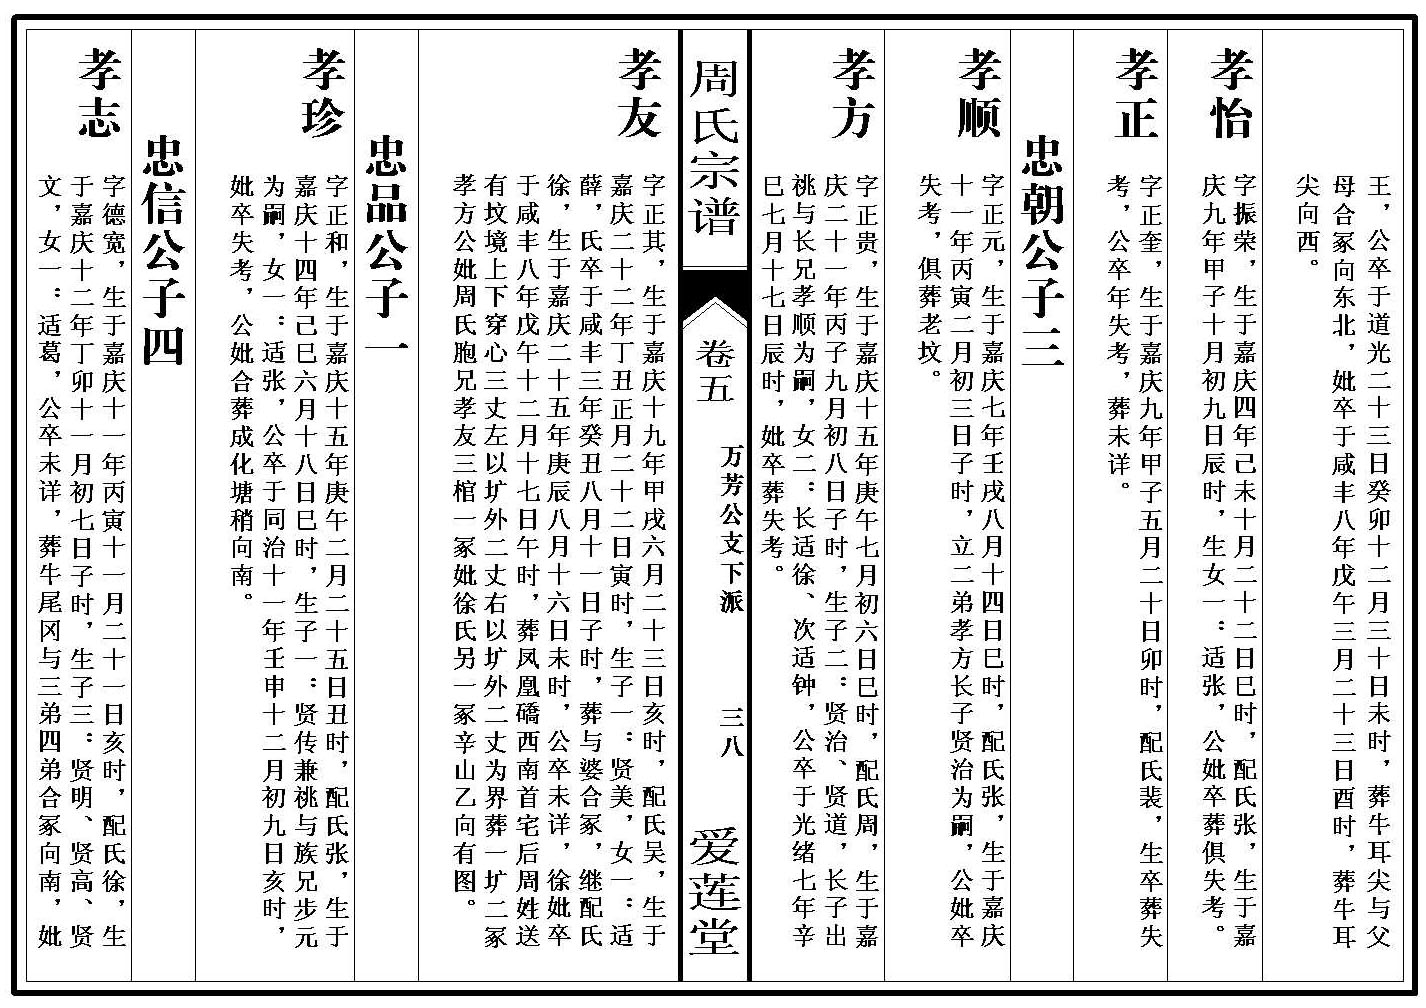 王，公卒于道光二十三日癸卯十二月三十日未时，葬牛耳尖与父
母合冢向东北，妣卒于咸丰八年戊午三月二十三日酉时，葬牛耳
尖向西。
孝怡
字振荣，生于嘉庆四年己未十月二十二日巳时，配氏张，生于嘉
庆九年甲子十月初九日辰时，生女一：适张，公妣卒葬俱失考。
孝正
字正奎，生于嘉庆九年甲子五月二十日卯时，配氏裴，生卒葬失
考，公卒年失考，葬未详。
忠朝公子三
孝顺
字正元，生于嘉庆七年壬戌八月十四日巳时，配氏张，生于嘉庆
十一年丙寅二月初三日子时，立二弟孝方长子贤治为嗣，公妣卒
失考，俱葬老坟。
孝方
字正贵，生于嘉庆十五年庚午七月初六日巳时，配氏周，生于嘉
庆二十一年丙子九月初八日子时，生子二：贤治、贤道，长子出
祧与长兄孝顺为嗣，女二：长适徐、次适钟，公卒于光绪七年辛
巳七月十七日辰时，妣卒葬失考。
周氏宗谱
卷五
万芳公支下派
三八
爱莲堂
孝友
字正其，生于嘉庆十九年甲戌六月二十三日亥时，配氏吴，生于
嘉庆二十二年丁丑正月二十二日寅时，生子一：贤美，女一：适
薛，氏卒于咸丰三年癸丑八月十一日子时，葬与婆合冢，继配氏
徐，生于嘉庆二十五年庚辰八月十六日未时，公卒未详，徐妣卒
于咸丰八年戊午十二月十七日午时，葬凤凰礄西南首宅后周姓送
有坟境上下穿心三丈左以圹外二丈右以圹外二丈为界葬一圹二冢
孝方公妣周氏胞兄孝友三棺一冢妣徐氏另一冢辛山乙向有图。
忠品公子一
孝珍
字正和，生于嘉庆十五年庚午二月二十五日丑时，配氏张，生于
嘉庆十四年己巳六月十八日巳时，生子一：贤传兼祧与族兄步元
为嗣，女一：适张，公卒于同治十一年壬申十二月初九日亥时，
妣卒失考，公妣合葬成化塘稍向南。
忠信公子四
孝志
字德宽，生于嘉庆十一年丙寅十一月二十一日亥时，配氏徐，生
于嘉庆十二年丁卯十一月初七日子时，生子三：贤明、贤高、贤
文，女一：适葛，公卒未详，葬牛尾冈与三弟四弟合冢向南，妣